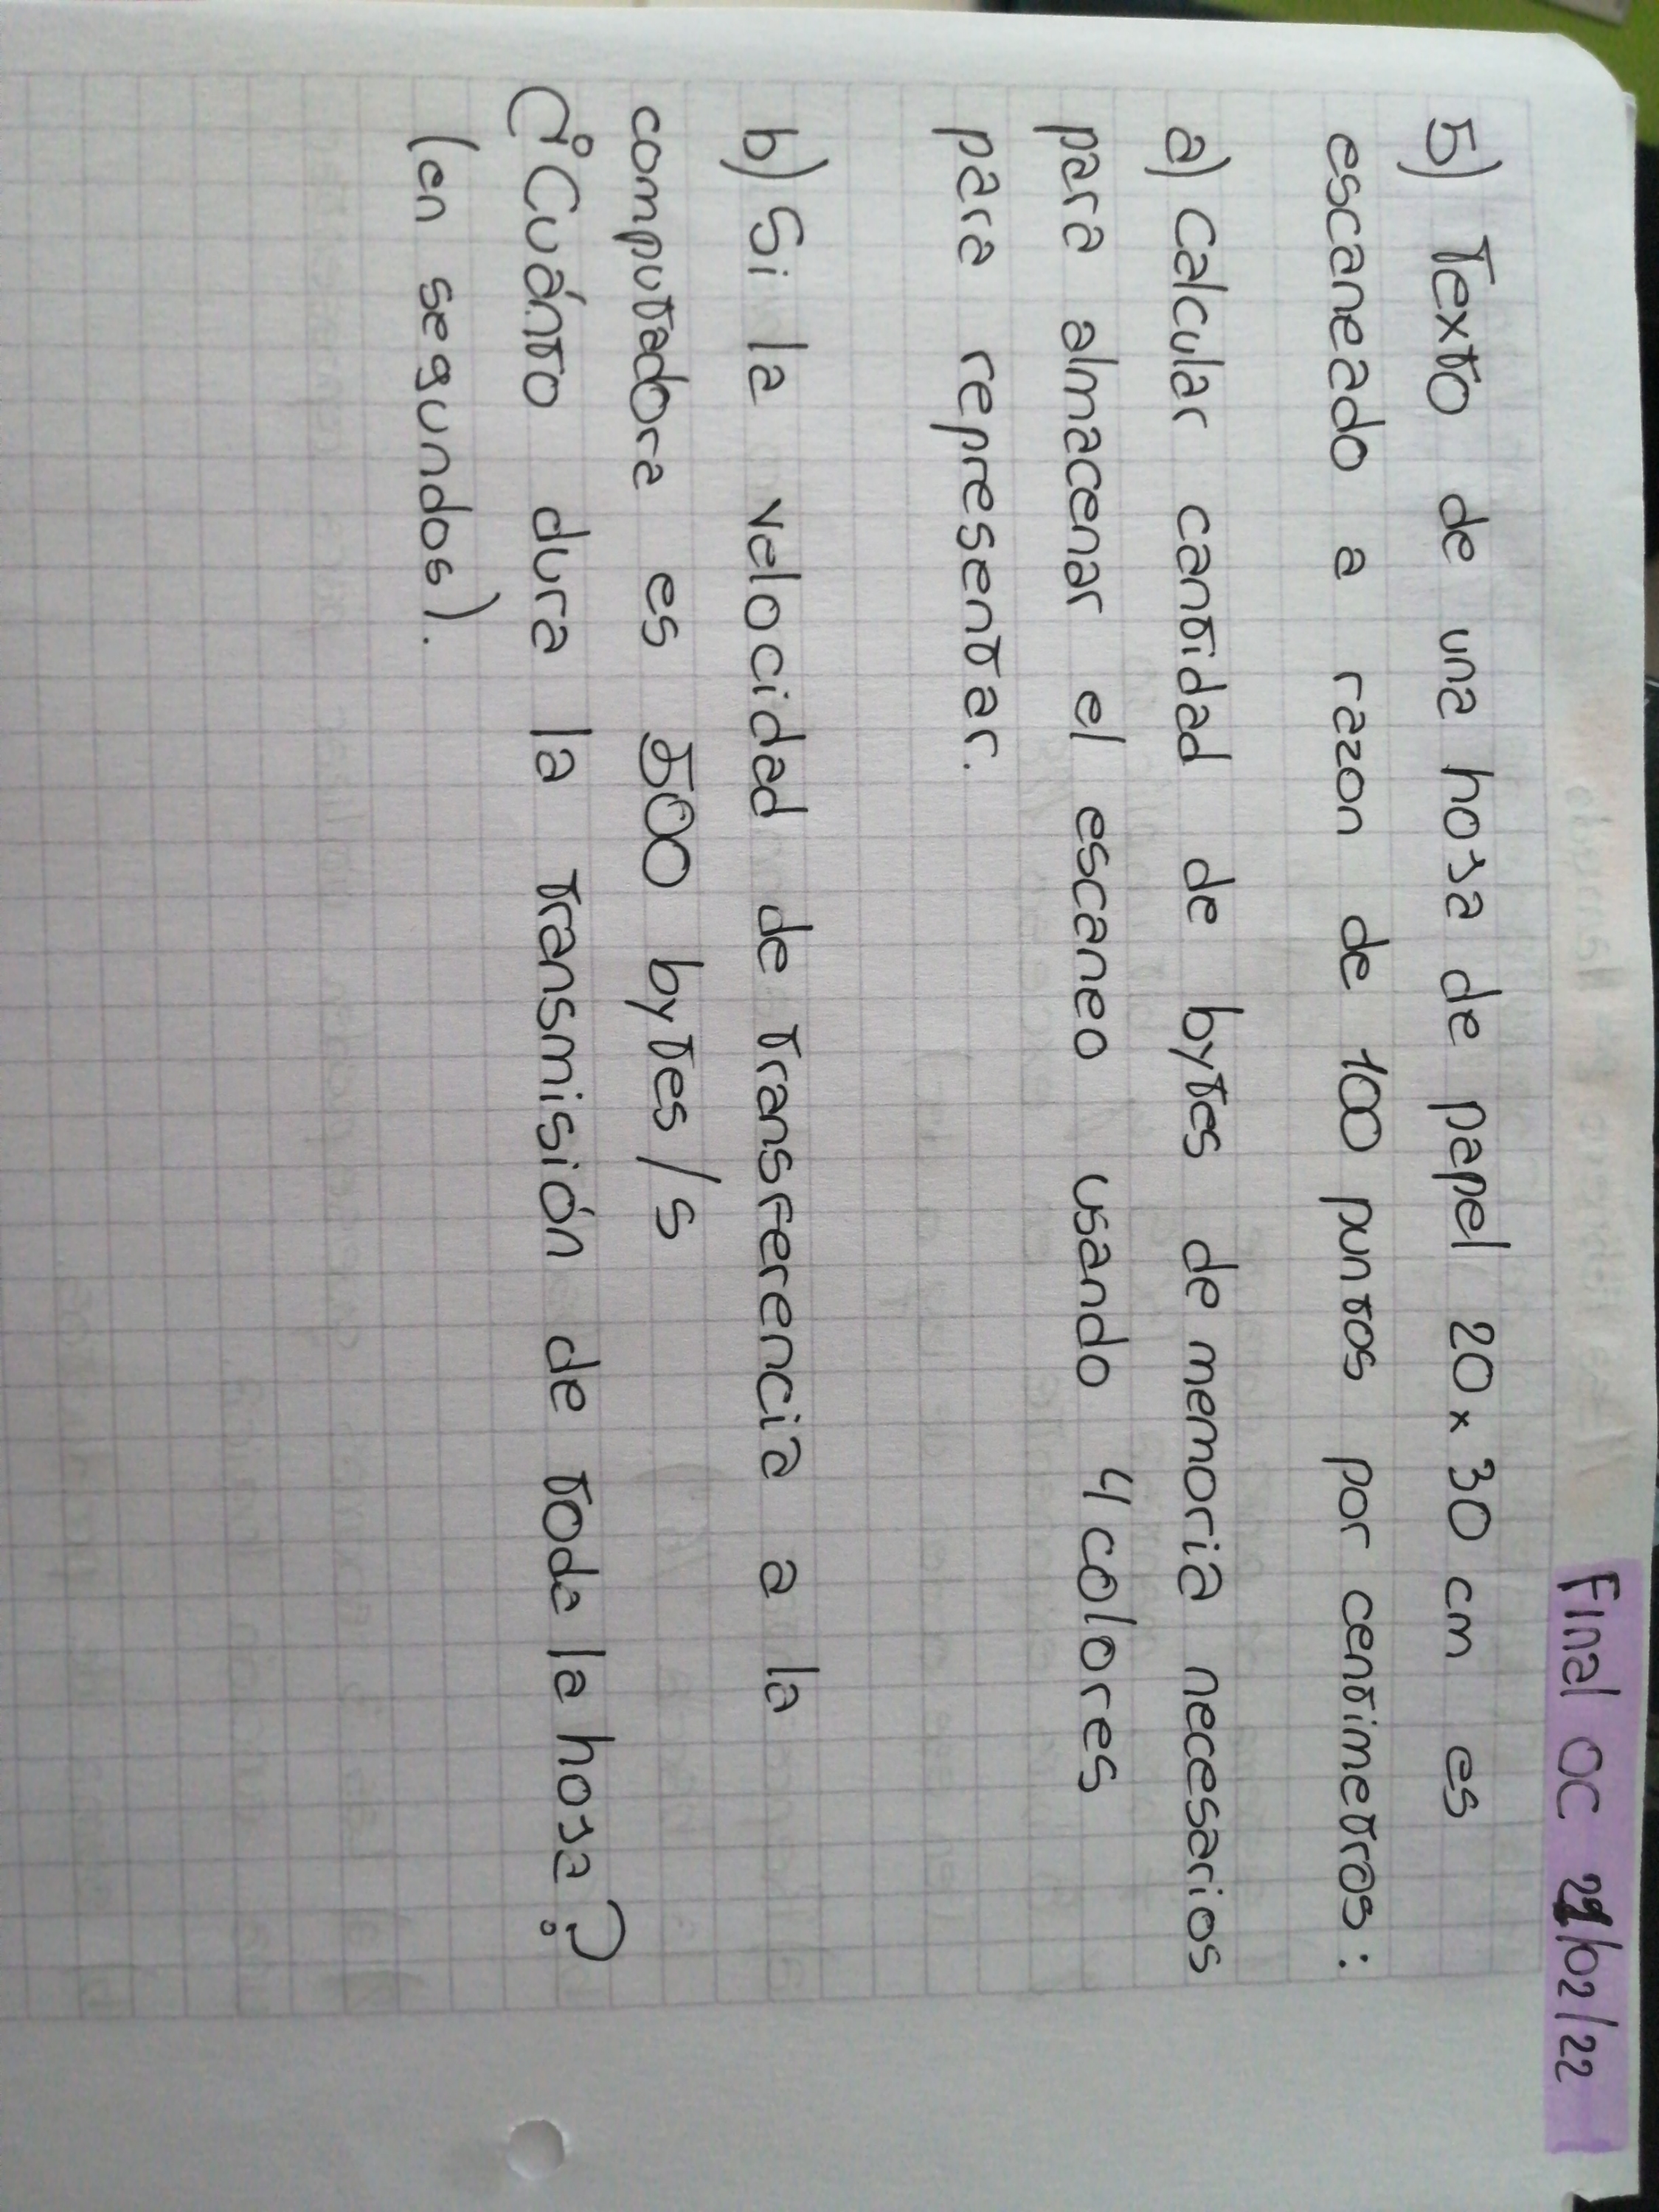 Final OC 29/02/22
5) Texto de una hoja de papel 20x30 cm es
escaneado a razon de 100 puntos por centimetros:
a) Calcular cantidad de bytes de memoria necesarios
para almacenar el escaneo usando 4 colores
para representar.
b) Si la velocidad de transferencia a la
computadora es 500 bytes/s
¿Cuánto dura la transmisión de toda la hoja?
(en segundos).